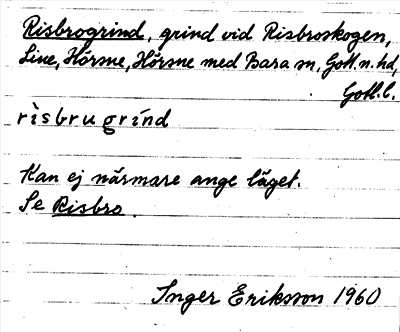 Risbrogrind, grind vid Risbroskogen,
Line, Hörsne, Hörsne med Bara sn, Gotl. n. hd,
Gotl. l.
rìsbrugrínd
Kan ej närmare ange läget.
Se Risbro.
Inger Eriksson 1960